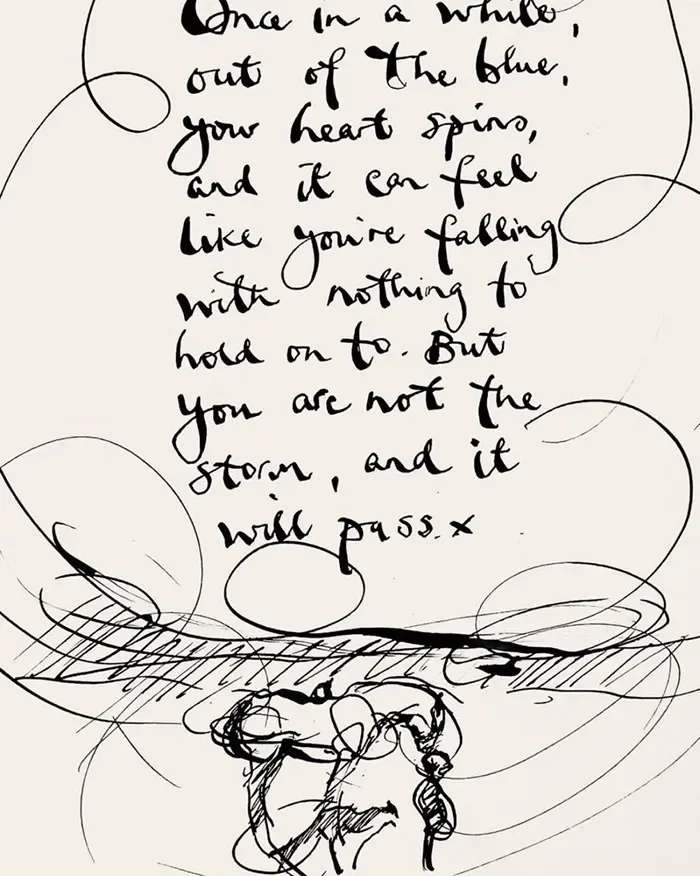 Once in a while,
out of the blue,
your heart spins,
and it can feel
like you're falling
with nothing to
hold on to. But
you are not the
storm, and it
will pass. x